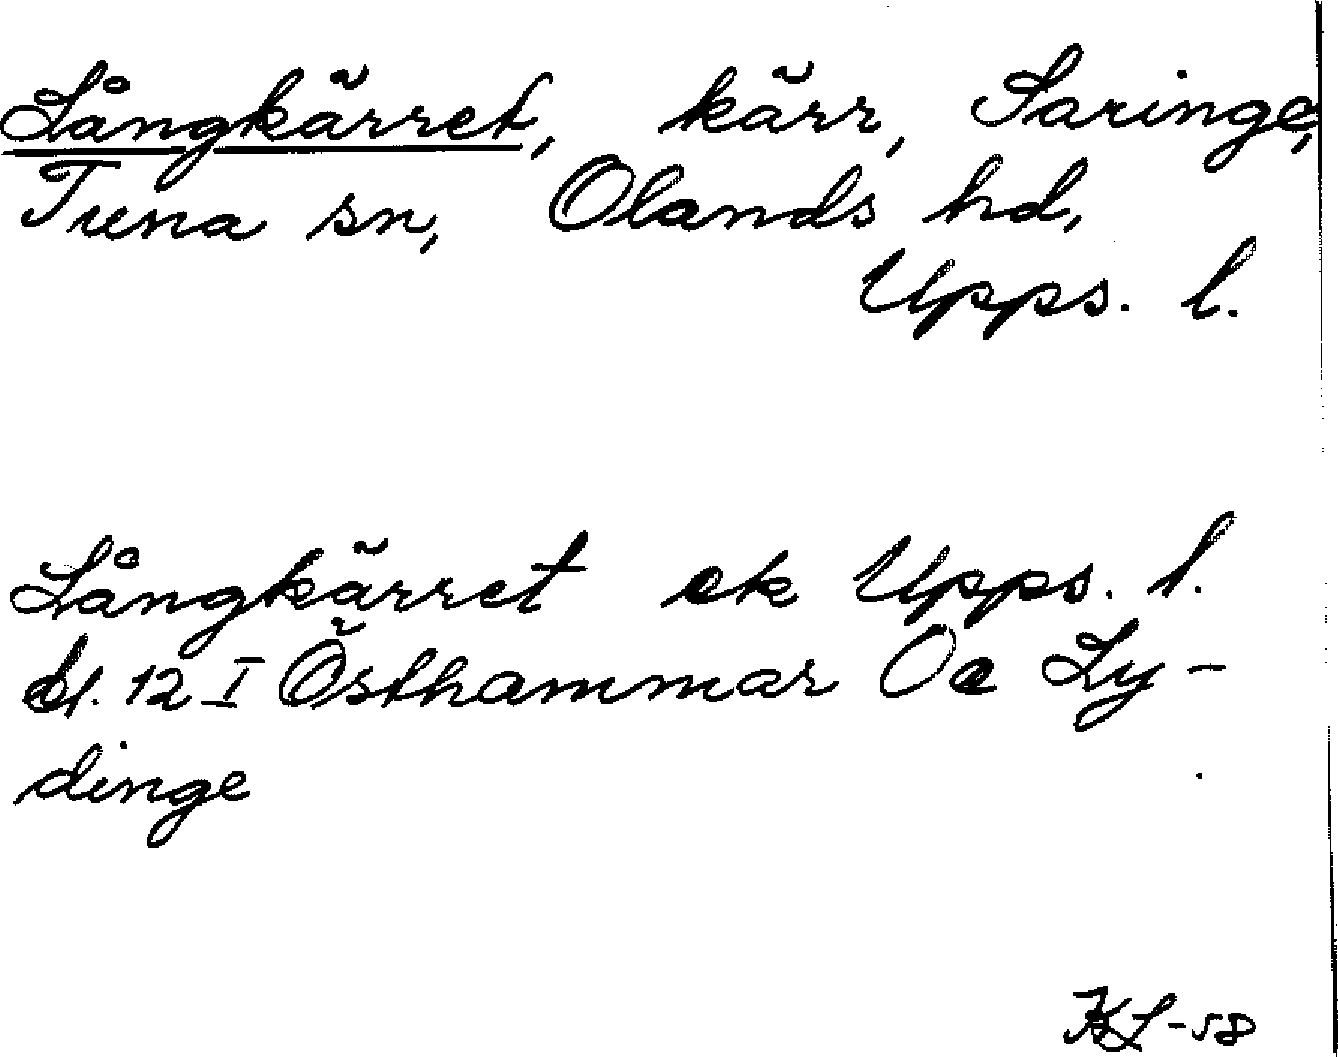 Långkärret, kärr, Saringe,
Tuna sn, Olands hd,
Upps. l.
Långkärret ek Upps. l.
bl. 12 I Östhammar Oa Ly-
dinge
KL-58